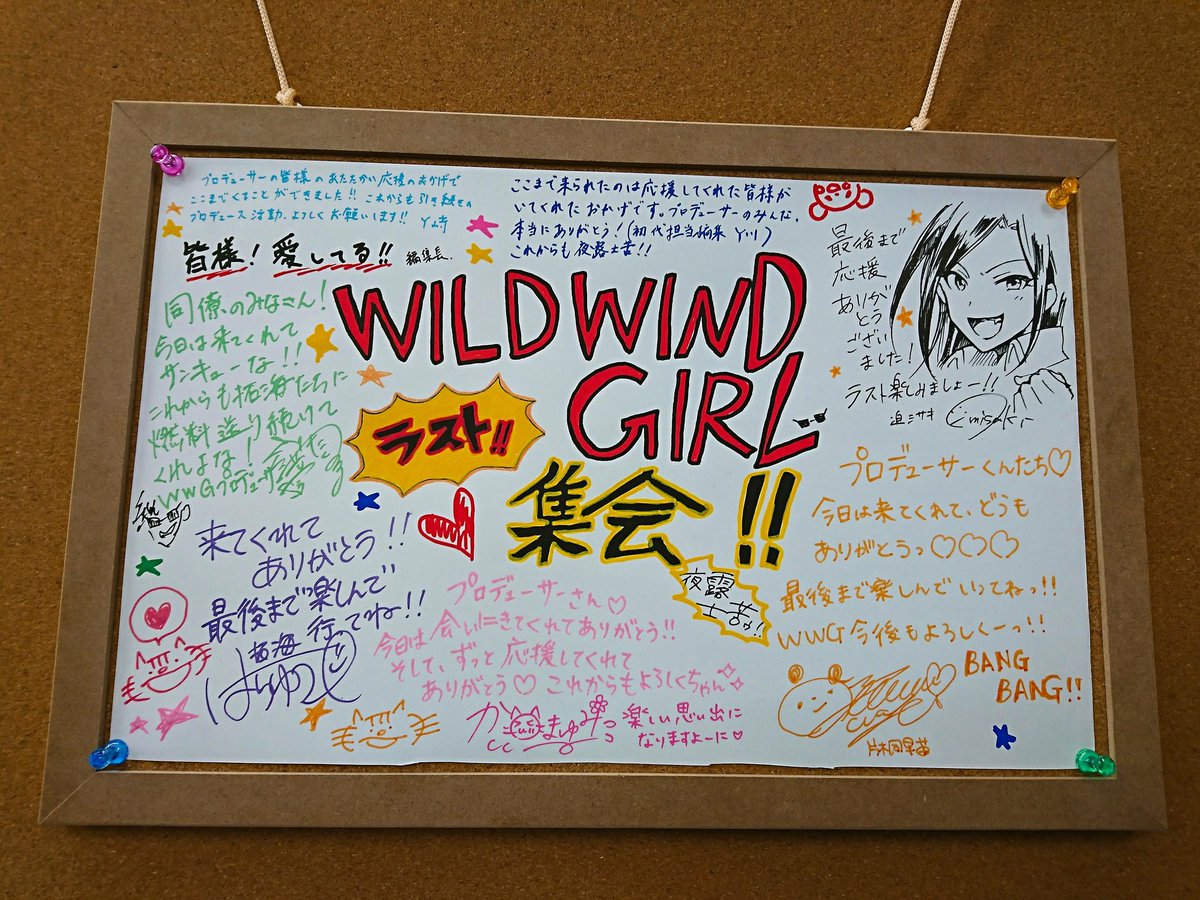 プロデューサーの皆様のあたたかい応援のおかげで
ここまでくることができました!! これからも引き続き
プロデュース活動、よろしくお願いします!!
皆様! 愛してる!! 編集長.
ここまで来られたのは応援してくれた皆様が
いてくれたおかげです。プロデューサーのみんな、
本当にありがとう!(初代担当編集 Y川)
これからも夜露士苦!!
最後まで
応援
ありが
とう
ござい
ました!
ラスト楽しみましょー!!
迫ミサキ
misaki
WILD WIND
GIRL
ラスト!!
集会!!
夜露
士苦!!
同僚のみなさん!
今日は来てくれて
サンキューな!!
これからも拓海たちに
燃料送り続けて
くれよな!
WWGプロデューサー
来てくれて
ありがとう!!
最後まで楽しんで
行ってね!!
拓海
プロデューサーさん♡
今日は会いにきてくれてありがとう!!
そして、ずっと応援してくれて
ありがとう♡ これからもよろしくちゃん
楽しい思い出に
なりますよーに♡
プロデューサーくんたち♡
今日は来てくれて、どうも
ありがとうっ♡♡♡
最後まで楽しんでいってねっ!!
WWG今後もよろしくーっ!!
BANG
BANG!!
片桐早苗